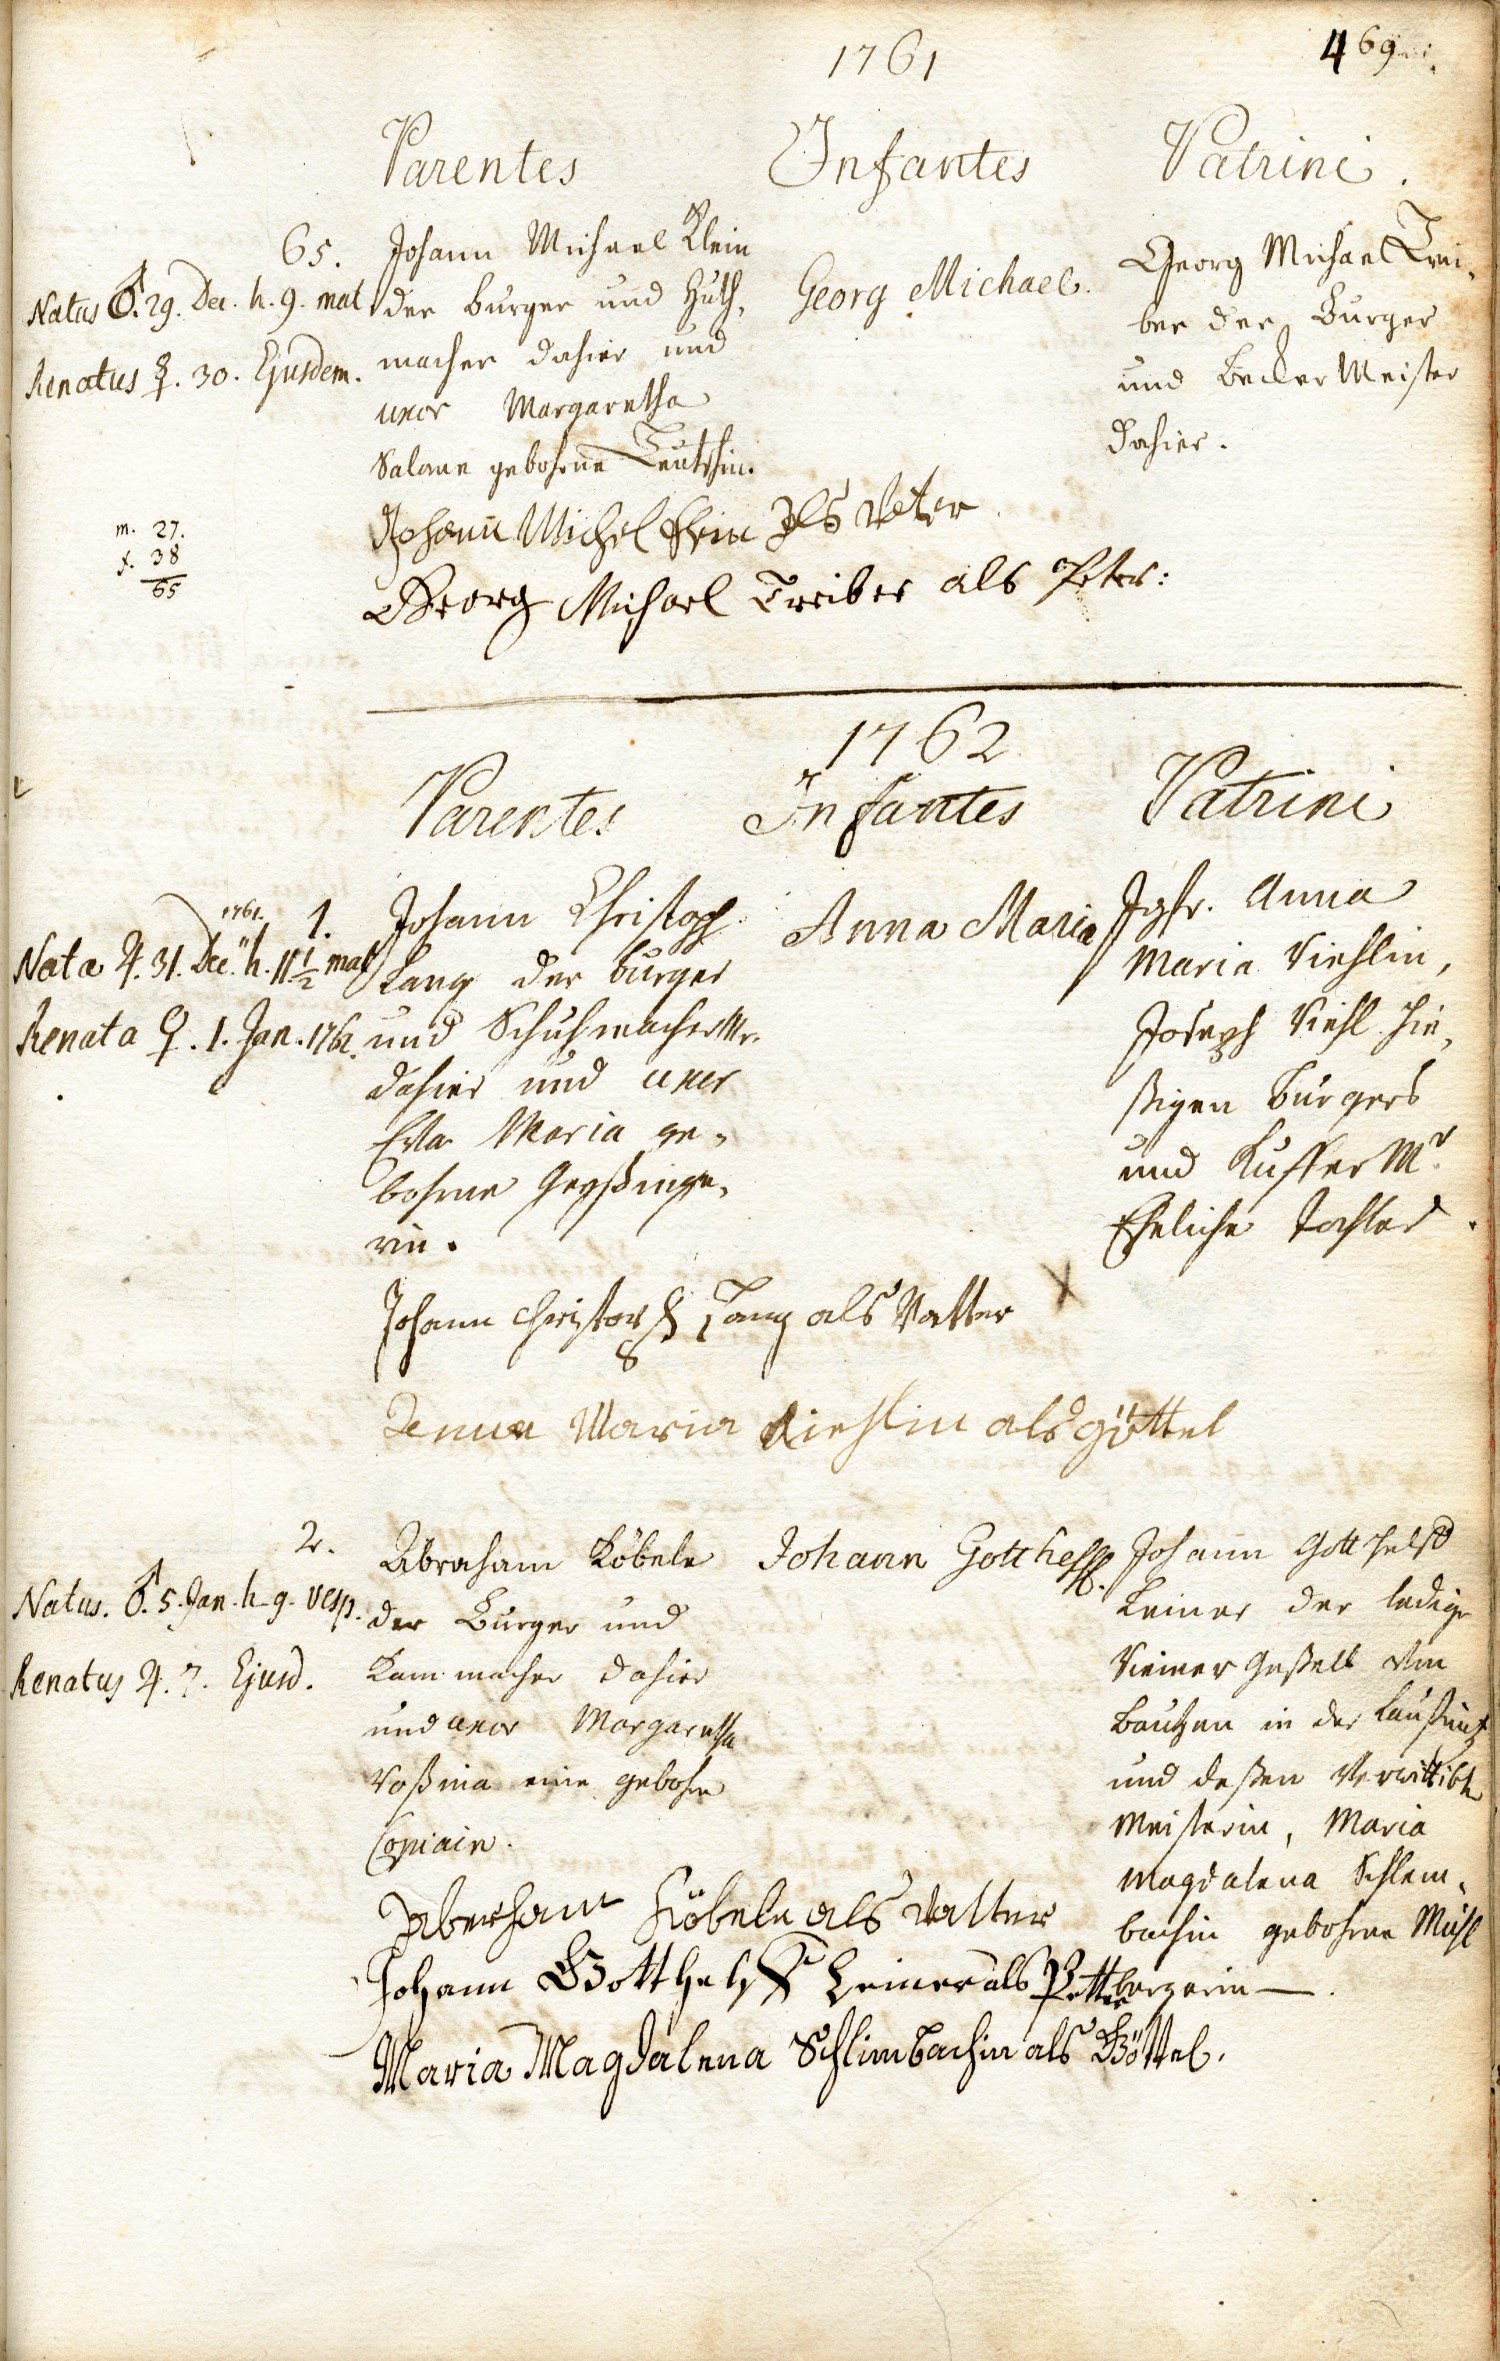 469
1761
Parentes Infantes Patrini.
65.
Natus ♂. 29. Dec. h. 9. mat
Renatus ☿. 30. Ejusdem.
Johann Michael Klein
der burger und Huth,
macher dahier und
uxor Margaretha
Salome gebohrne
Georg Michael.
Georg Michael Trei,
ber der Burger
und Becker Meister
dahier.
m. 27.
f. 38
65
Johann Michel Klein Als Vater
Georg Michael Treiber als Peter:
1762
Parentes Infantes Patrini
1761. 1.
Nata ♃. 31. Dec. h. 11 1/2 mat
Renata ♀. 1. Jan. 1762.
Johann Christoph
Lang der burger
und Schuhmacher Mr.
dahier und uxor
Eva Maria ge,
bohrne
rin.
Anna Maria
Jgfr. Anna
Maria Viehlin,
Joseph Viehl hie,
ßigen burgers
und Kuffer Mr.
Eheliche Tochter.
Johann Christoph Lang als Vatter
X
Anna Maria Viehlin als göttel
2.
Natus. ♂. 5. Jan. h. 9. vesp.
Renatus ♃. 7. Ejusd.
Abraham Köbele
der Burger und
Kammacher dahier
und uxor Margaretha
eine gebohrne
Johann Gotthelff.
Johann Gotthelff
Leiner der ledige
Riemer Gesell von
Bautzen in der Laußnitz
und deßen Verwittibte
Meisterin, Maria
Magdalena Schlem,
bachin gebohrne Mühl
bergerin —.
Aberham Köbele als Vatter
Johann Gotthelff Leiner als Petter
Maria Magdalena Schlimbachin als Göttel.